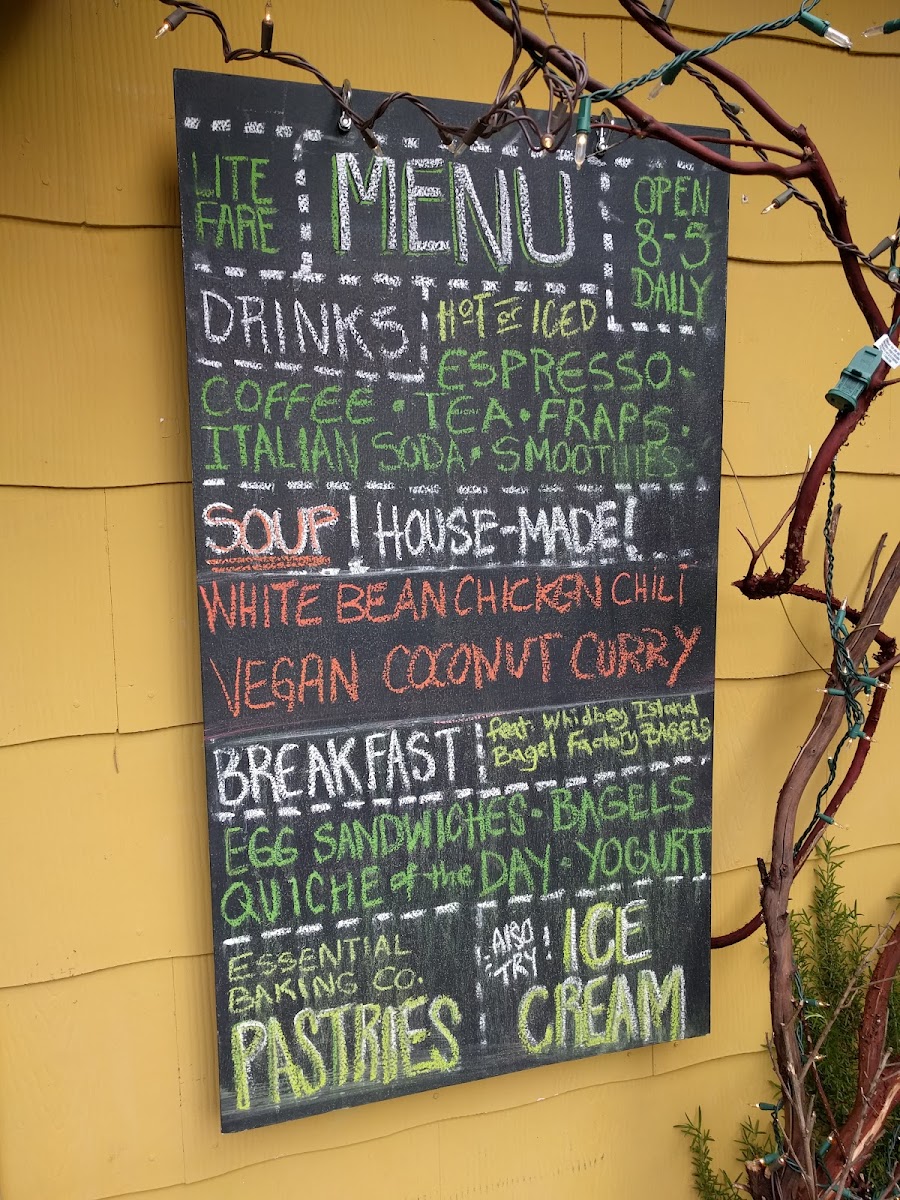 LITE
FARE
MENU
OPEN
8-5
DAILY
DRINKS
HOT OR ICED
ESPRESSO •
COFFEE • TEA • FRAPS •
ITALIAN SODA • SMOOTHIES
SOUP! HOUSE-MADE!
WHITE BEAN CHICKEN CHILI
VEGAN COCONUT CURRY
BREAKFAST
feat. Whidbey Island
Bagel Factory BAGELS
EGG SANDWICHES • BAGELS
QUICHE of the DAY • YOGURT
ESSENTIAL
BAKING CO.
PASTRIES
ALSO
TRY!
ICE
CREAM